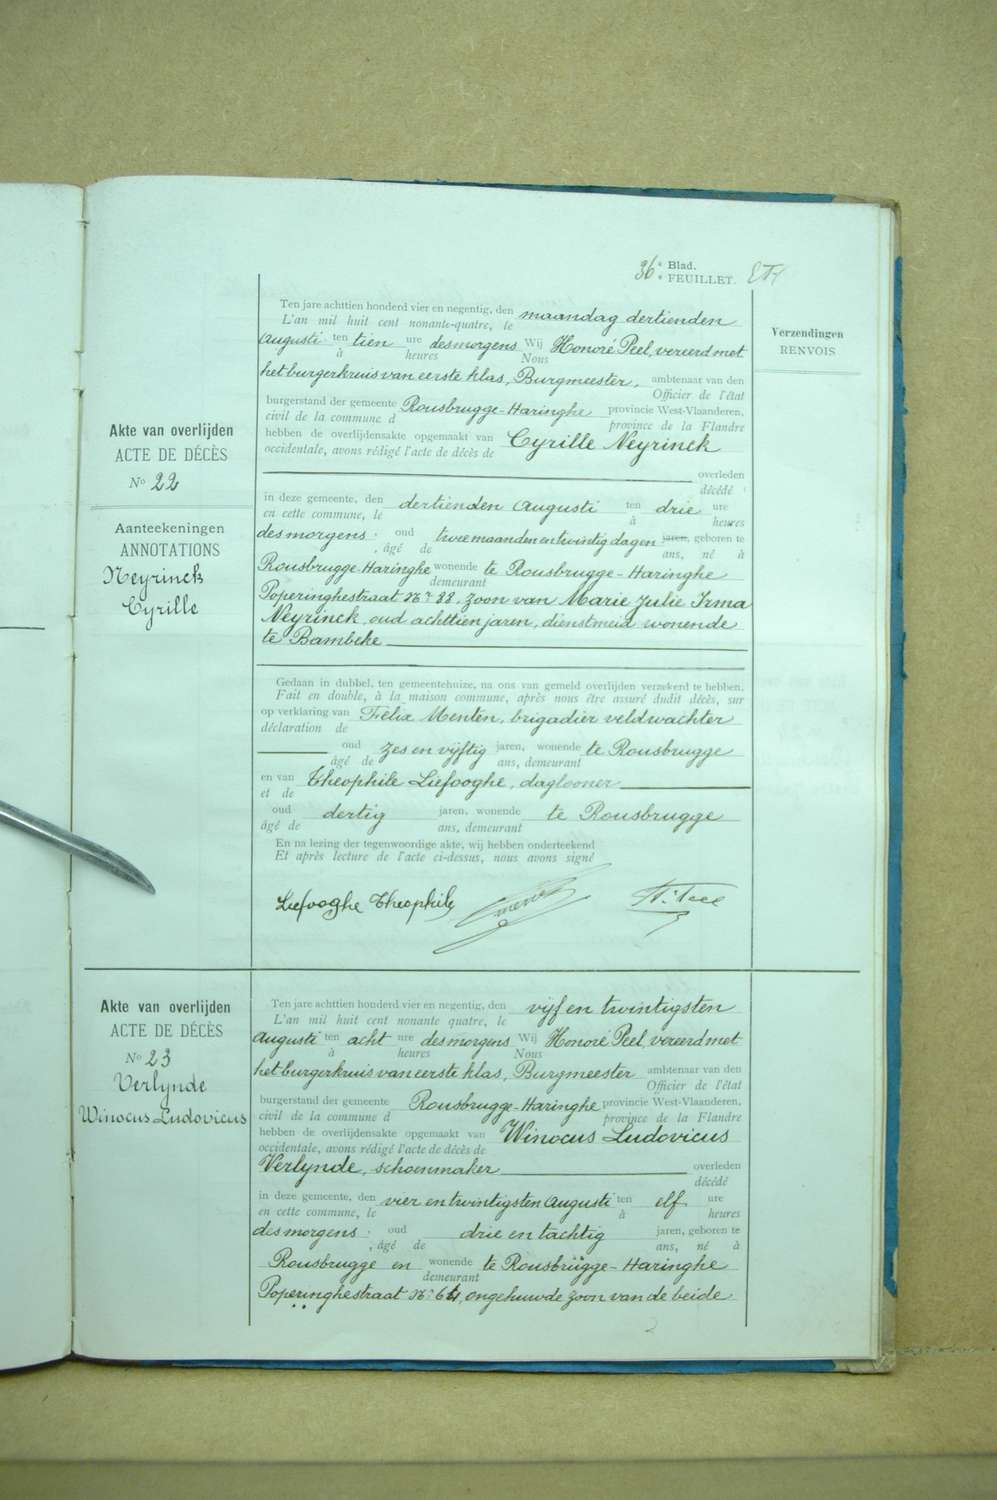 36e Blad.
FEUILLET.
Verzendingen
RENVOIS
Akte van overlijden
ACTE DE DÉCÈS
No 22
Aanteekeningen
ANNOTATIONS
Neyrinck
Cyrille
Ten jare achttien honderd vier en negentig, den maandag dertienden
L'an mil huit cent nonante-quatre, le
Augusti ten tien ure desmorgens Wij Honoré Peel, vereerd met
à heures Nous
het burgerkruis van eerste klas, Burgmeester, ambtenaar van den
Officier de l'état
burgerstand der gemeente Rousbrugge-Haringhe provincie West-Vlaanderen,
civil de la commune d province de la Flandre
hebben de overlijdensakte opgemaakt van Cyrille Neyrinck
occidentale, avons rédigé l'acte de décès de
overleden
décédé
in deze gemeente, den dertienden Augusti ten drie ure
en cette commune, le à heures
desmorgens; oud twee maanden en twintig dagen jaren, geboren te
, âgé de ans, né à
Rousbrugge-Haringhe wonende te Rousbrugge-Haringhe
demeurant
Poperinghestraat Nr 88. zoon van Marie Julie Irma
Neyrinck, oud achttien jaren, dienstmeid wonende
te Bambeke
Gedaan in dubbel, ten gemeentehuize, na ons van gemeld overlijden verzekerd te hebben,
Fait en double, à la maison commune, après nous être assuré dudit décès, sur
op verklaring van Felix Menten, brigadier veldwachter
déclaration de
oud zes en vijftig jaren, wonende te Rousbrugge
âgé de ans, demeurant
en van Theophile Liefooghe, daglooner
et de
oud dertig jaren, wonende te Rousbrugge
âgé de ans, demeurant
En na lezing der tegenwoordige akte, wij hebben onderteekend
Et après lecture de l'acte ci-dessus, nous avons signé
Liefooghe Theophile
Akte van overlijden
ACTE DE DÉCÈS
No 23
Verlynde
Winocus Ludovicus
Ten jare achttien honderd vier en negentig, den vijf en twintigsten
L'an mil huit cent nonante quatre, le
Augusti ten acht ure desmorgens Wij Honoré Peel, vereerd met
à heures Nous
het burgerkruis van eerste klas, Burgmeester ambtenaar van den
Officier de l'état
burgerstand der gemeente Rousbrugge-Haringhe provincie West-Vlaanderen,
civil de la commune d province de la Flandre
hebben de overlijdensakte opgemaakt van Winocus Ludovicus
occidentale, avons rédigé l'acte de décès de
Verlynde, schoenmaker overleden
décédé
in deze gemeente, den vier en twintigsten Augusti ten elf ure
en cette commune, le à heures
desmorgens; oud drie en tachtig jaren, geboren te
, âgé de ans, né à
Rousbrugge en wonende te Rousbrugge-Haringhe
demeurant
Poperinghestraat Nr 64, ongehuwde zoon van de beide